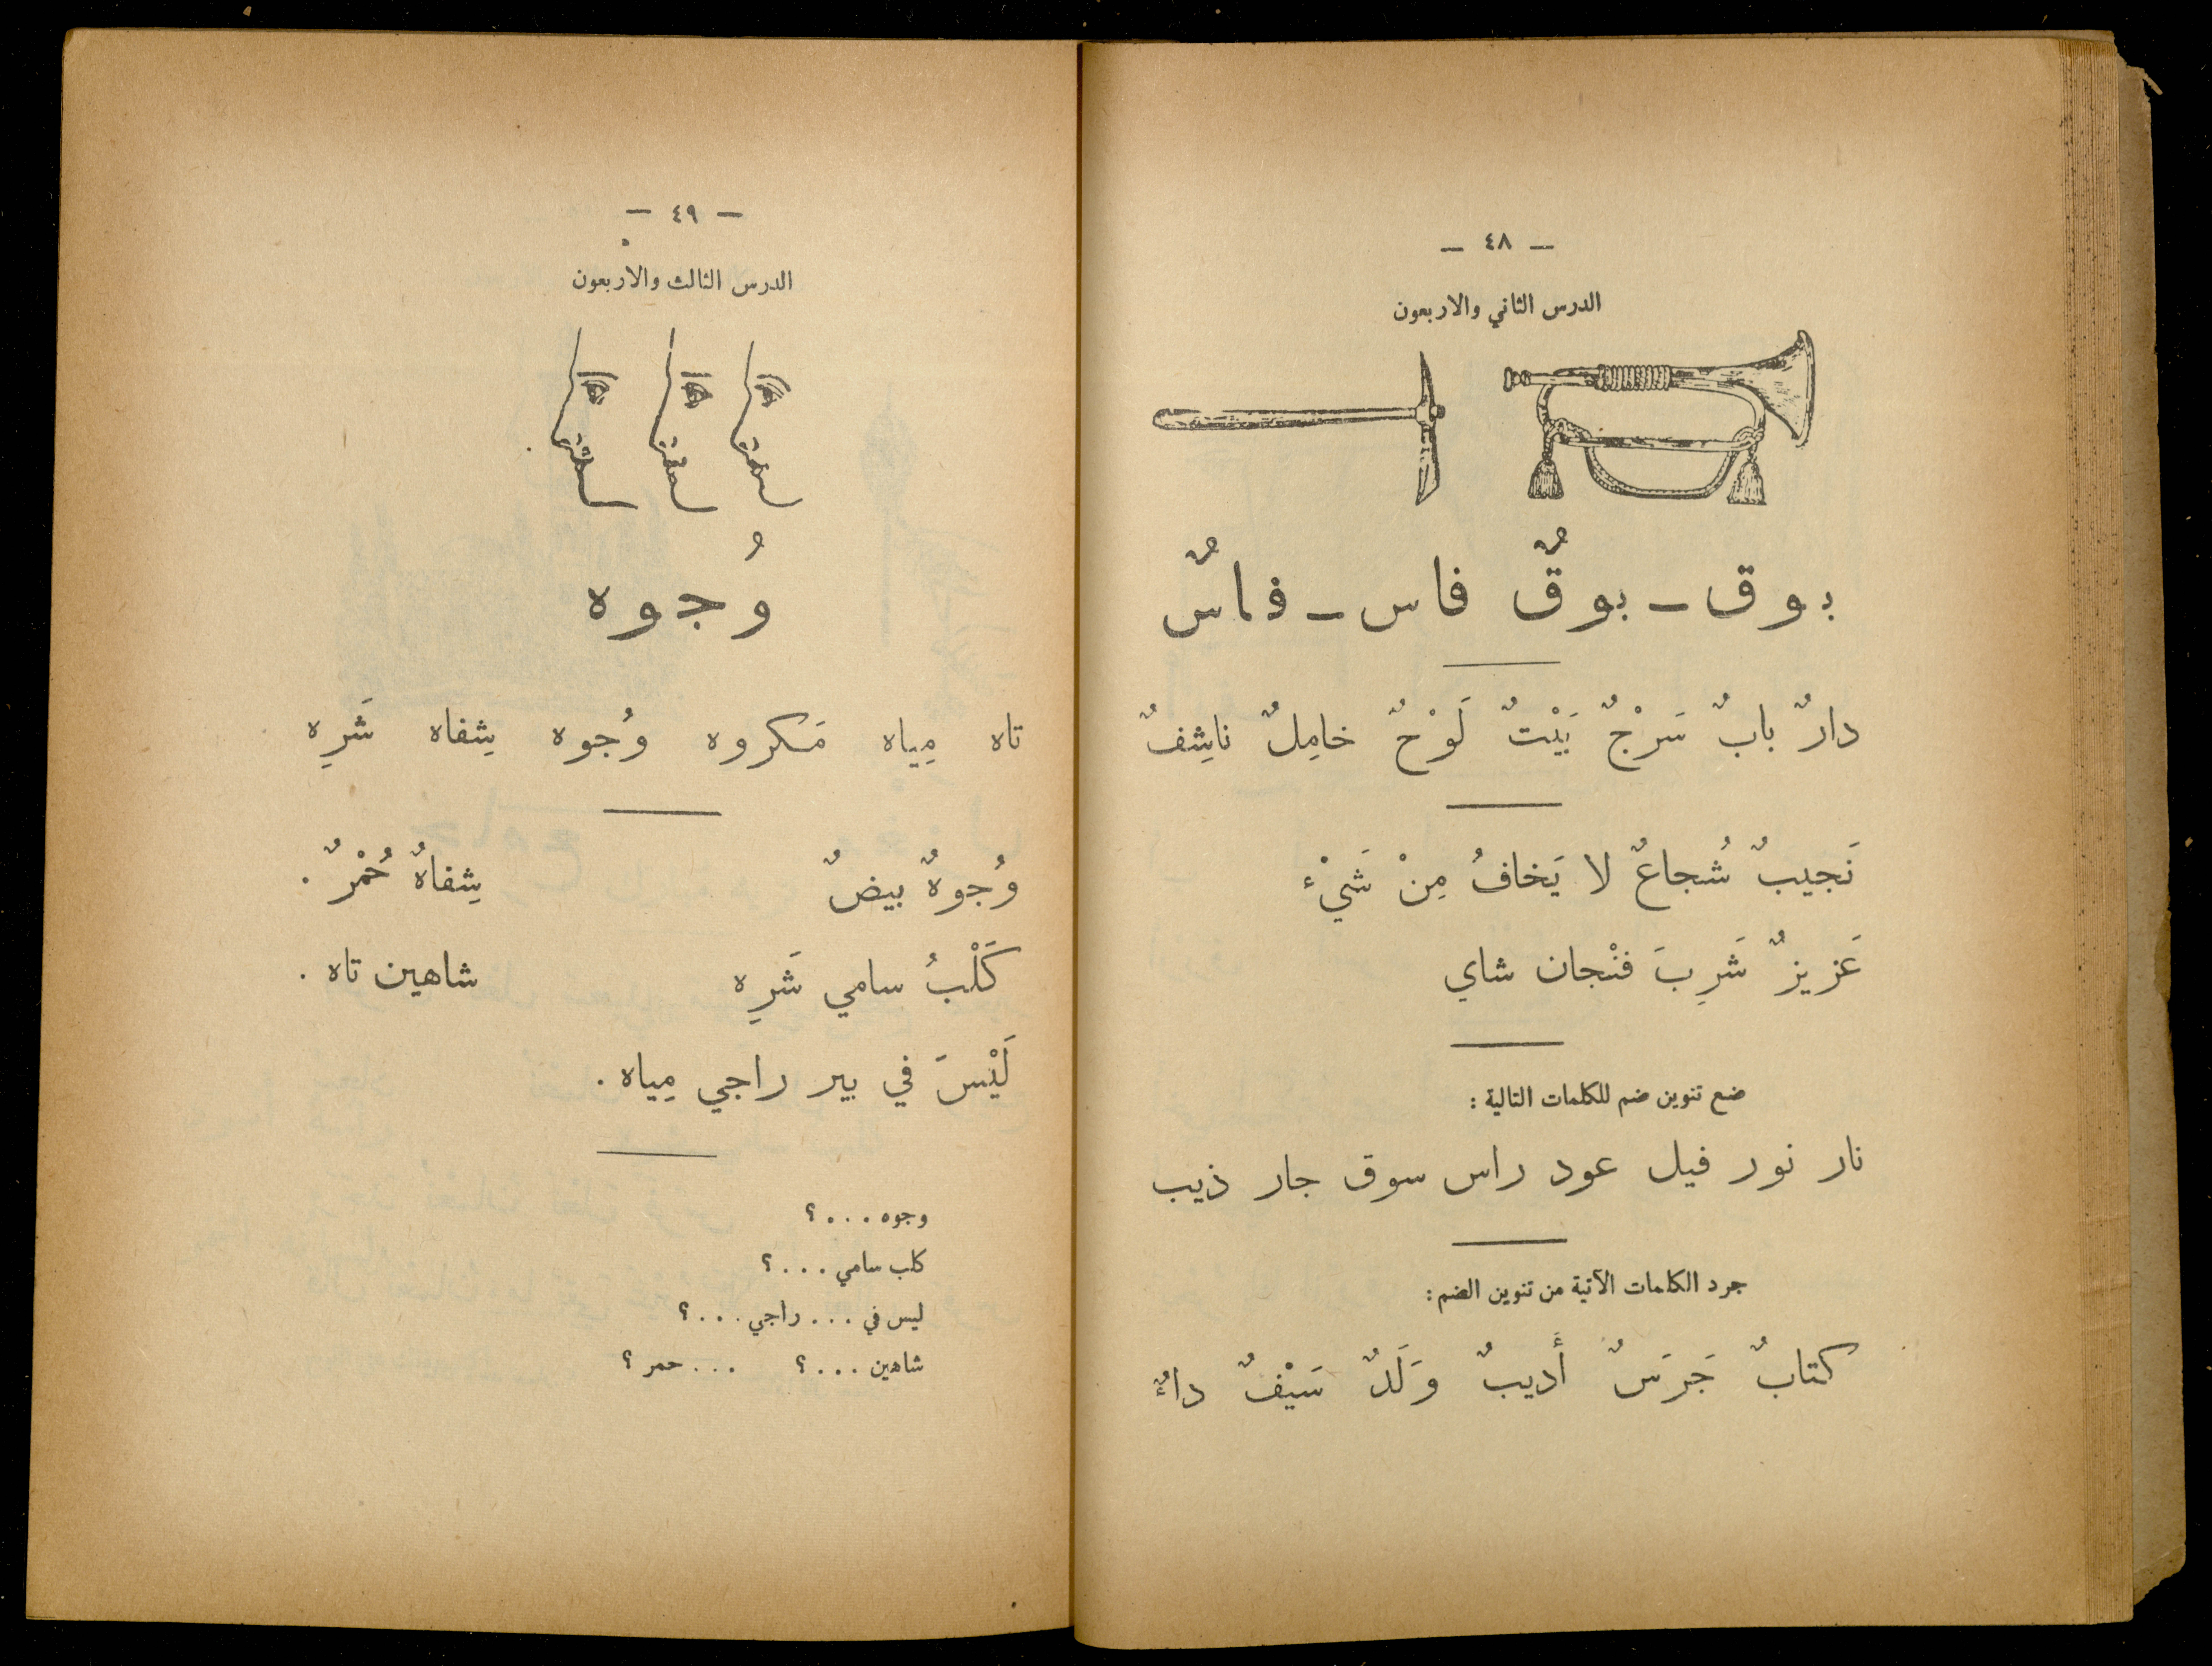 — ٤٨ —
الدرس الثاني والاربعون
بوق ـ بوقٌ فاس ـ فاسٌ
دارٌ بابٌ سَرْجٌ بَيْتٌ لَوْحٌ خامِلٌ ناشِفٌ
نَجيبٌ شُجاعٌ لا يَخافُ مِنْ شَيْء
عَزيزٌ شَرِبَ فنْجان شاي
ضع تنوين ضم للكلمات التالية :
نار نور فيل عود راس سوق جار ذيب
جرد الكلمات الآتية من تنوين الضم :
كتابٌ جَرَسٌ أَديبٌ وَلَدٌ سَيْفٌ داءٌ
— ٤٩ —
الدرس الثالث والاربعون
وُجوه
تاه مِياه مَكروه وُجوه شِفاه شَرِه
وُجوهٌ بيضٌ شِفاهٌ حُمْرٌ .
كَلْبُ سامي شَرِه شاهين تاه .
لَيْسَ في بير راجي مِياه .
وجوه . . . ؟
كلب سامي . . . ؟
ليس في . . . راجي . . . ؟
شاهين . . . ؟ . . . حمر ؟